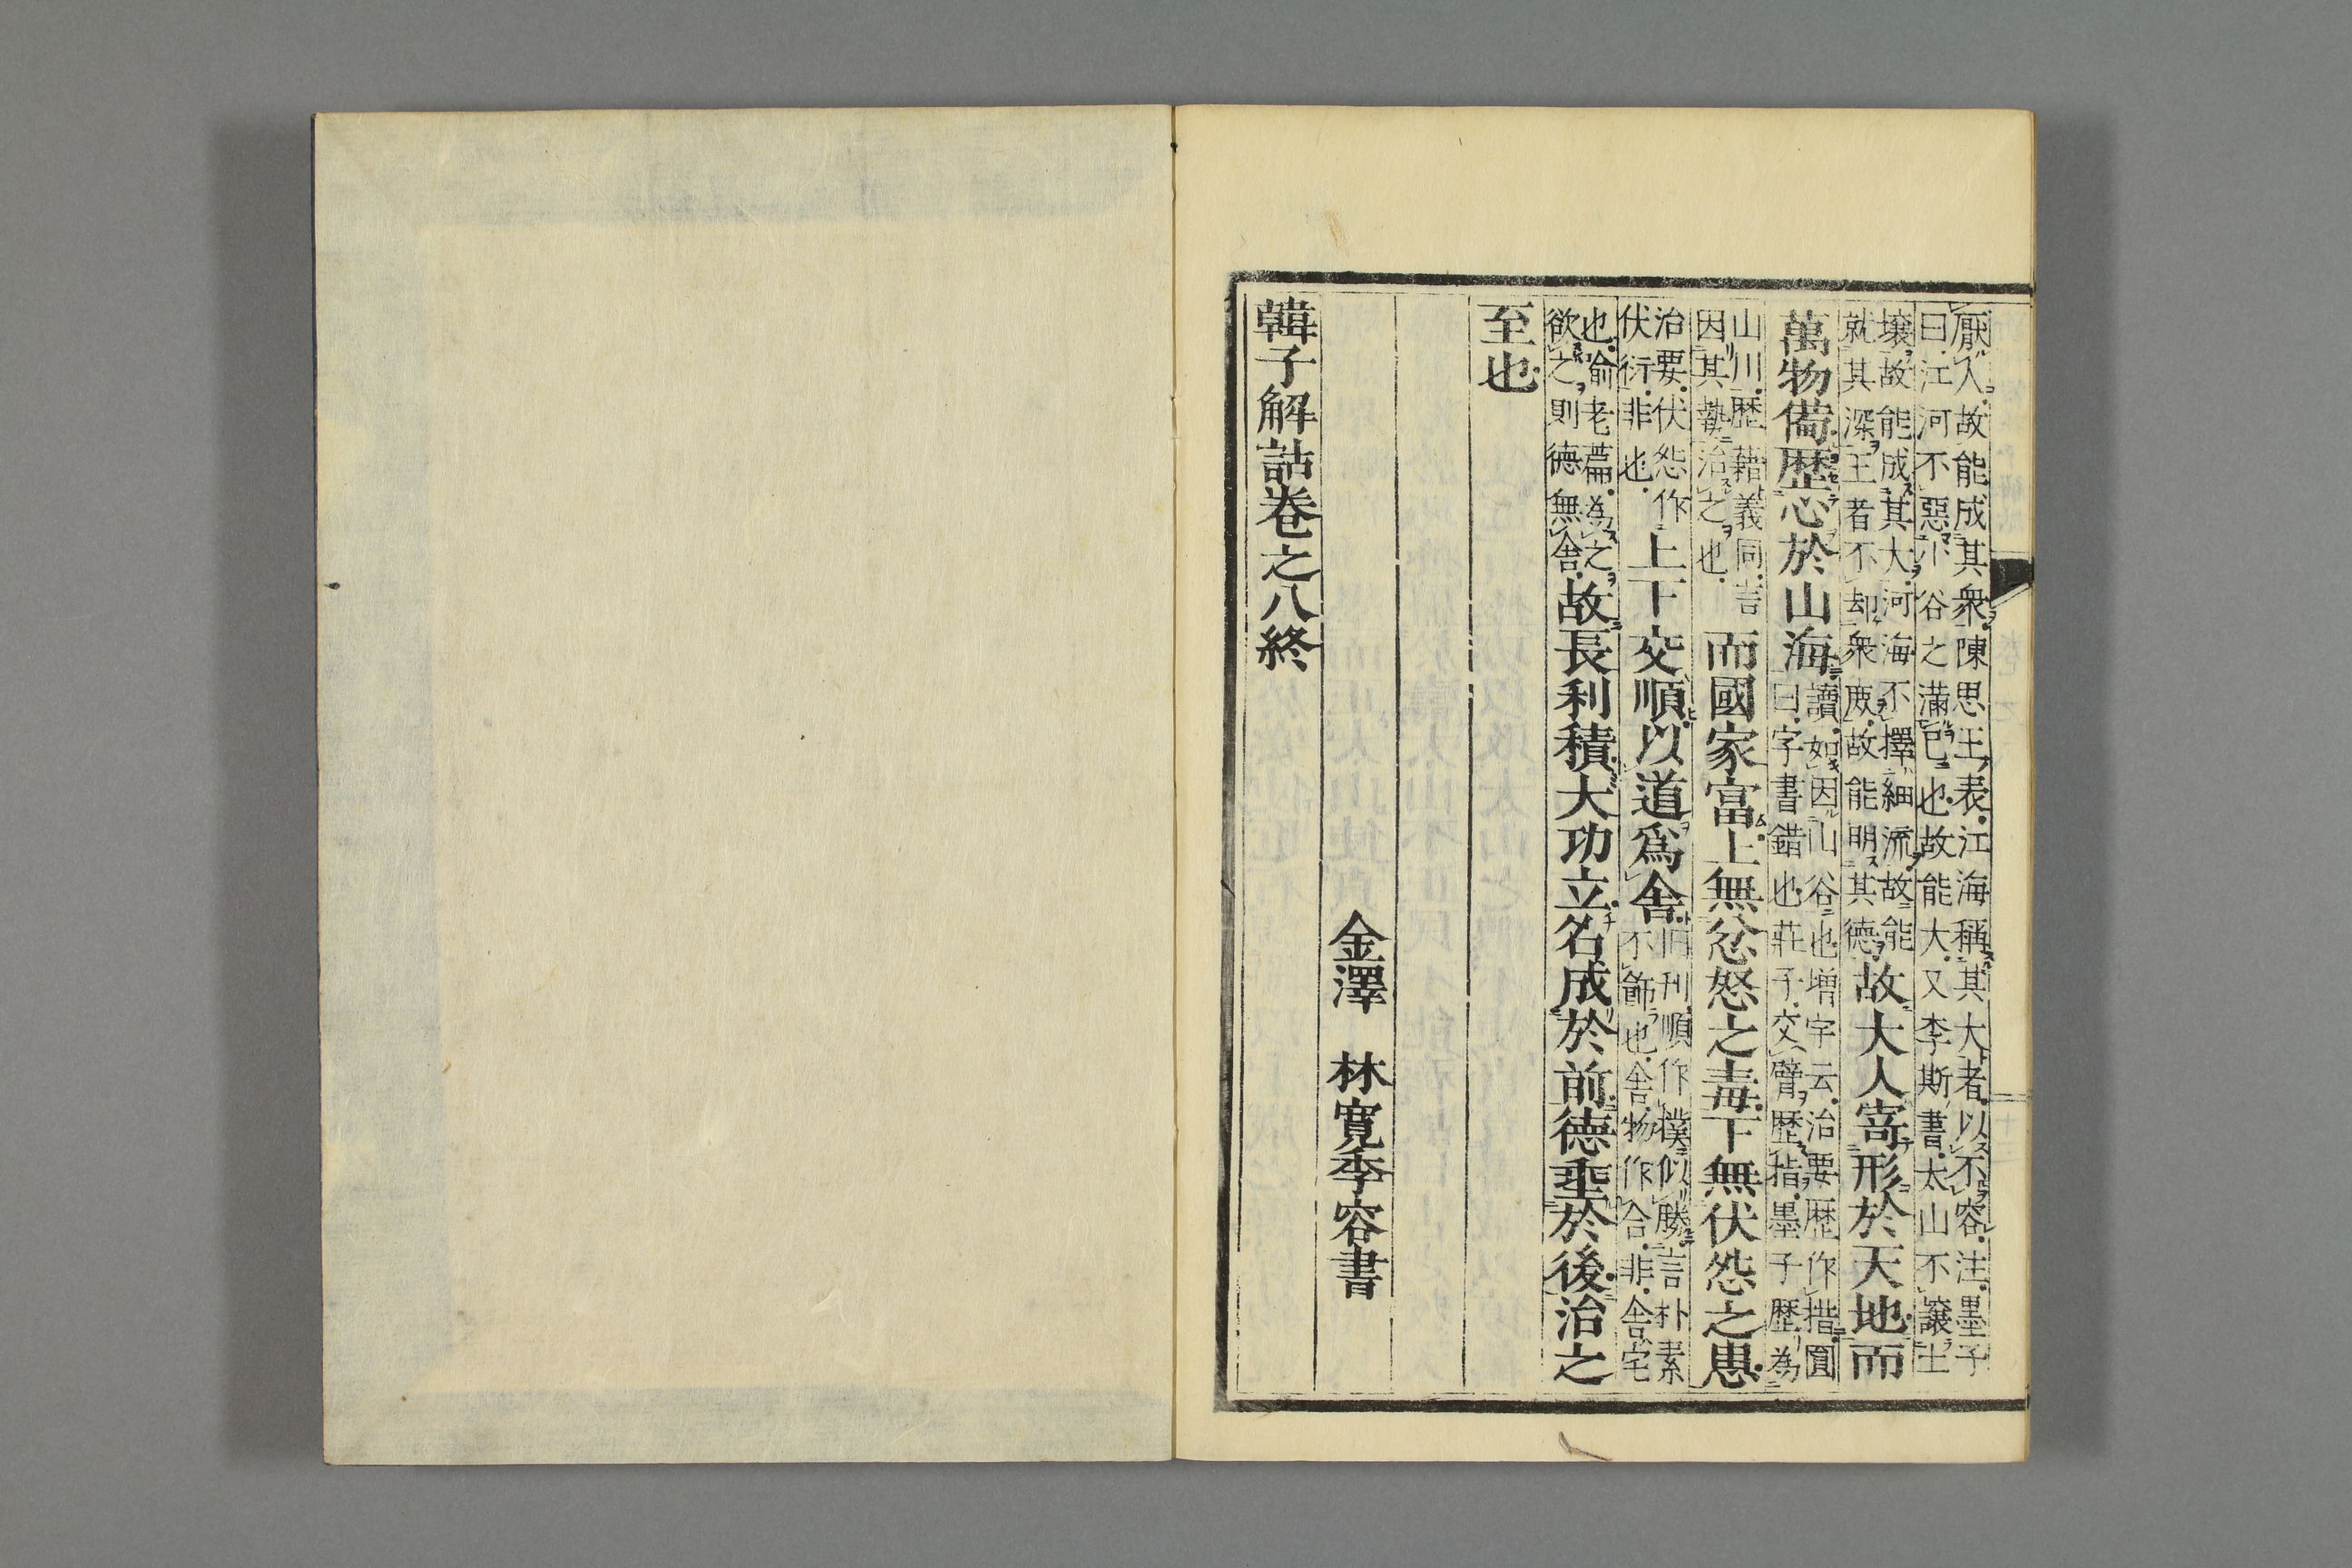 厭人故能成其衆陳思王表江海稱其大者以不容注墨子
曰江河不惡小谷之滿已也故能大又李斯書太山不讓土
壤故能成其大河海不擇細流故能
就其深王者不却衆庻故能明其德
故大人寄形於天地而
萬物備歴心於山海
讀如因山谷也増字云治要歴作措圓
曰字書錯也莊子交臂歴指墨子歴為
山川歴藉義同言
因其埶治之也
而國家富上無忿怒之毒下無伏怨之患
治要伏怨作
伏衍非也
上下交順以道爲舎
旧刊順作撲似勝言朴素
不餙也舎物作合非舎宅
也喻老篇為之
欲之則德無舎
故長利積大功立名成於前德垂於後治之
至也
金澤　林寛季容書
韓子解詁卷之八終